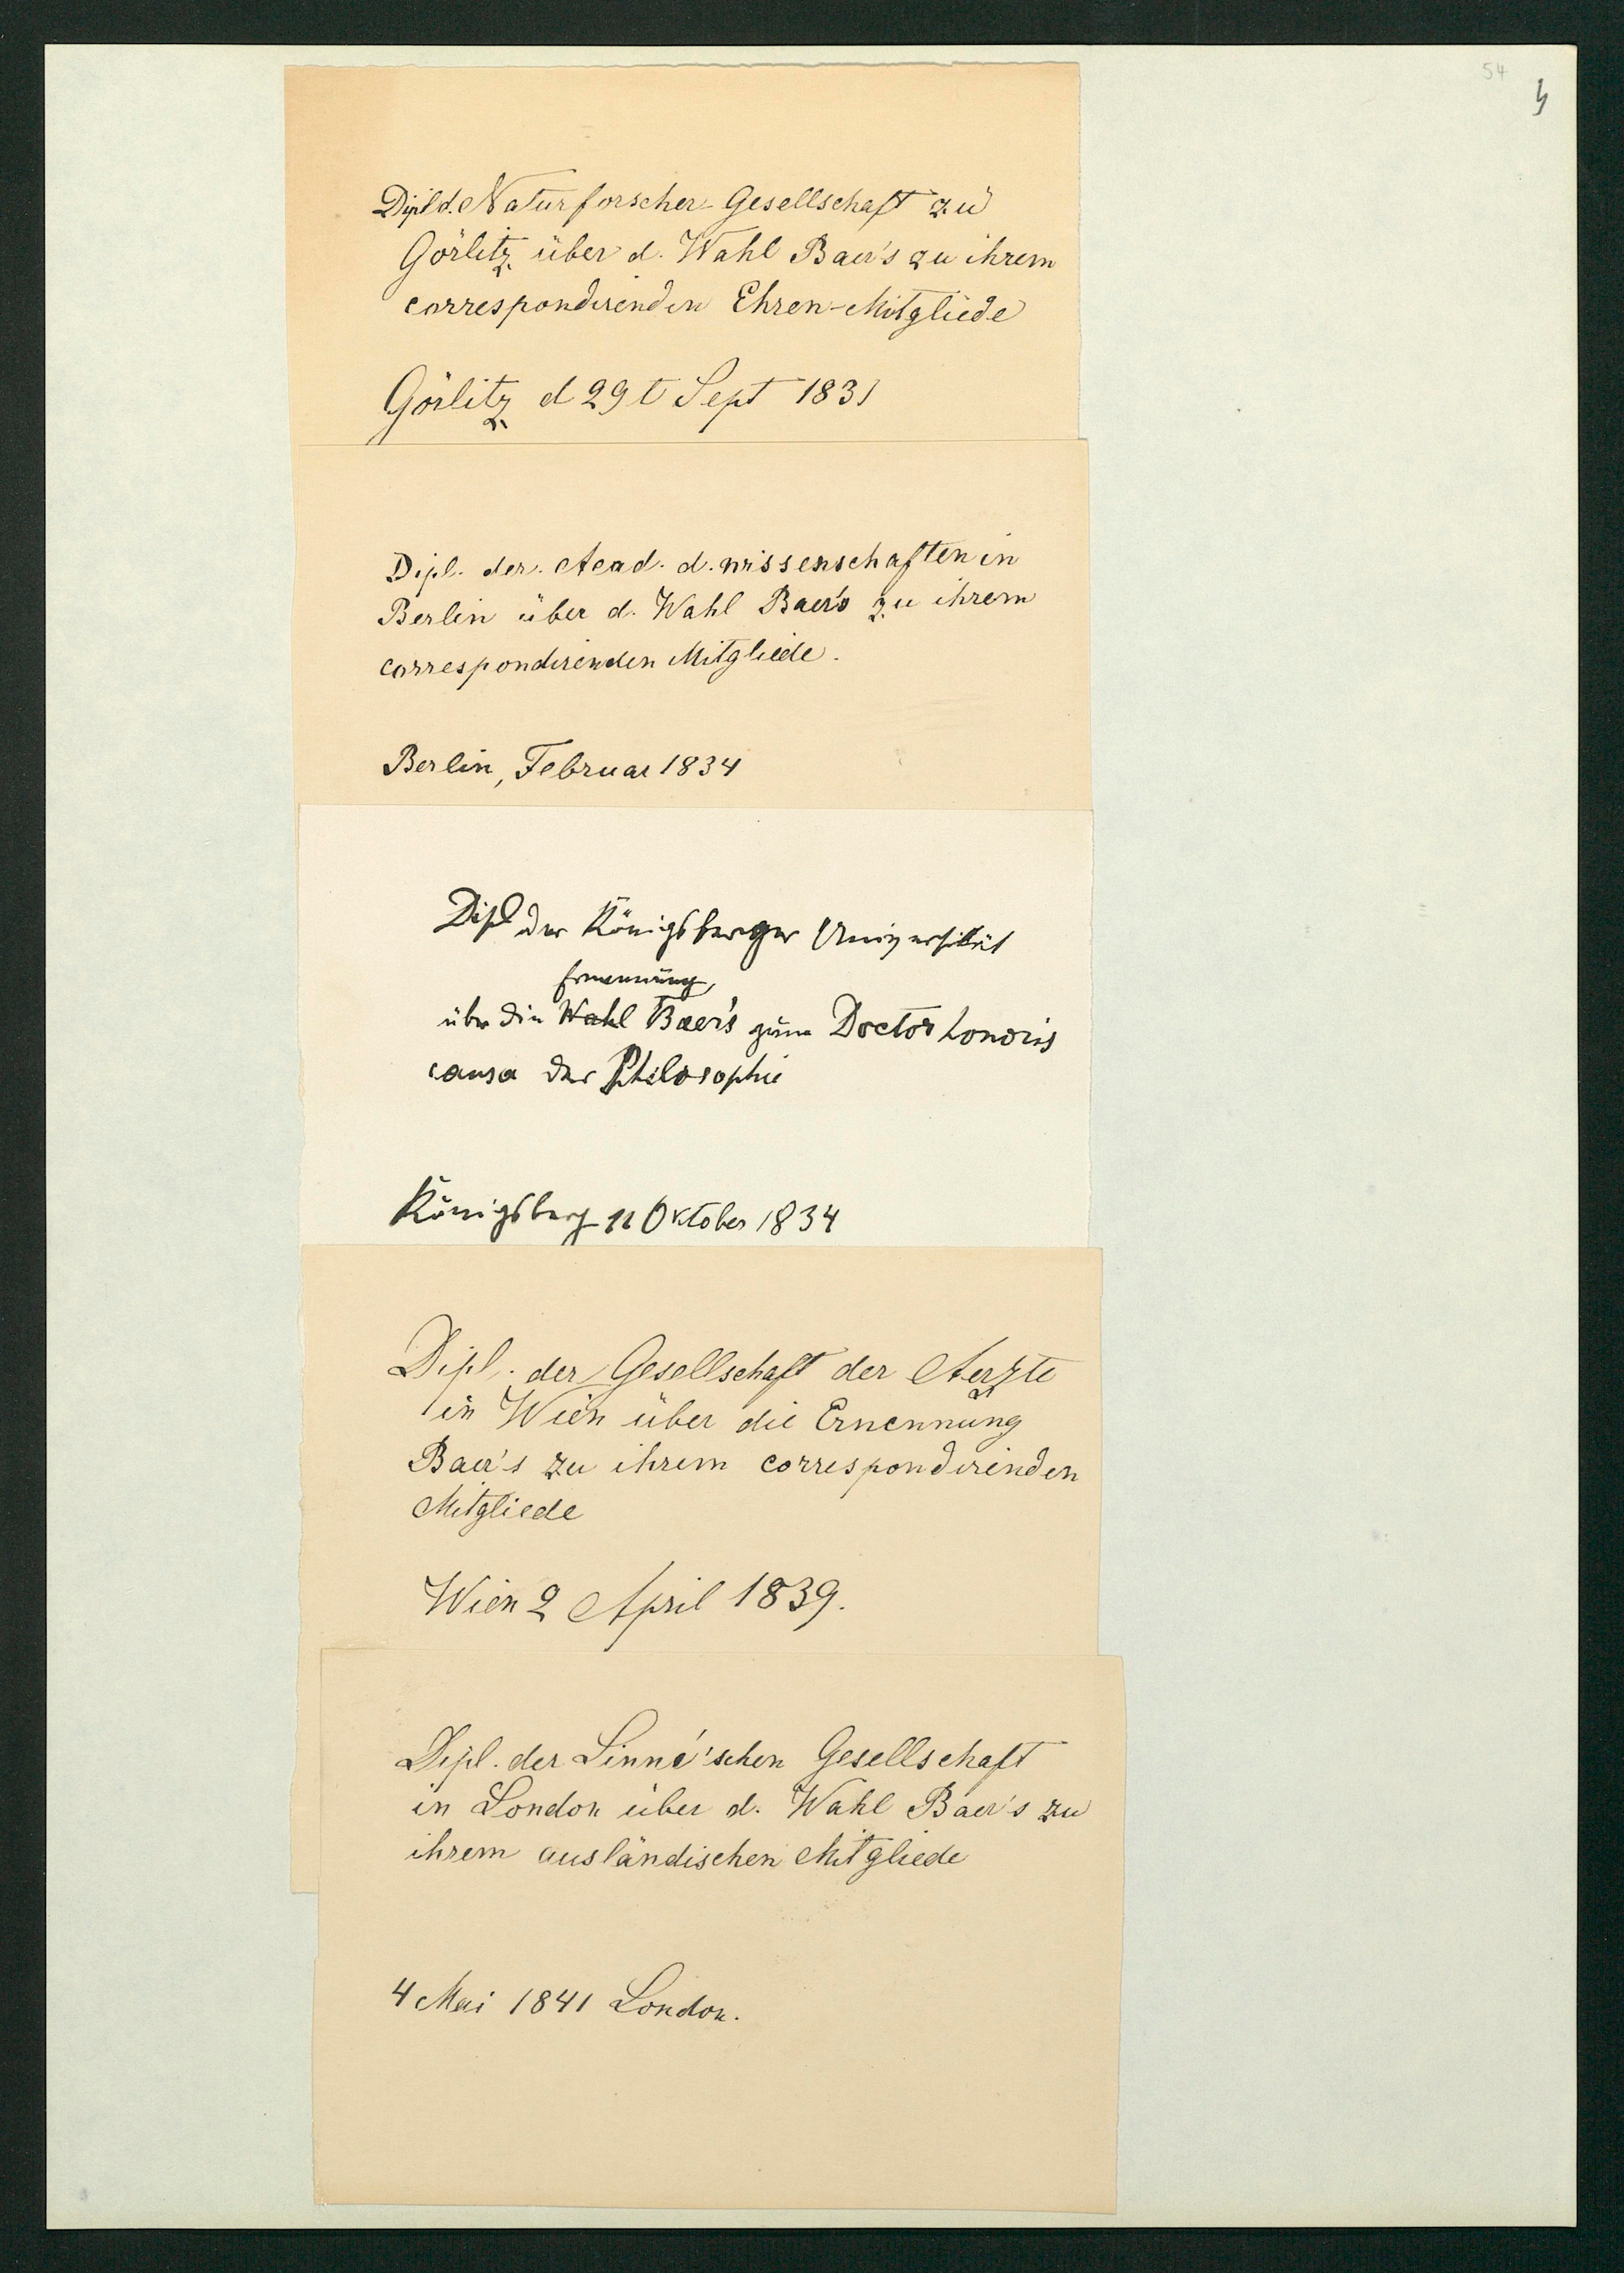 54
4
Dipl d. Naturforscher-Gesellschaft zu
Görlitz über d. Wahl Baer's zu ihrem
correspondirenden Ehren-Mitgliede
Görlitz d 29t Sept 1831
Dipl. der. Acad. d. wissenschaften in
Berlin über d. Wahl Baer's zu ihrem
correspondirenden Mitgliede.
Berlin, Februar 1834
Dipl der Königsberger Universität
Ernennung
über die Wahl Baer's zum Doctor honoris
causa der Philosophie
Königsberg 11 Oktober 1834
Dipl. der Gesellschaft der Aerzte
in Wien über die Ernennung
Baer's zu ihrem correspondirenden
Mitgliede
Wien 2 April 1839.
Dipl. der Linné'schen Gesellschaft
in London über d. Wahl Baer's zu
ihrem ausländischen Mitgliede
4 Mai 1841 London.